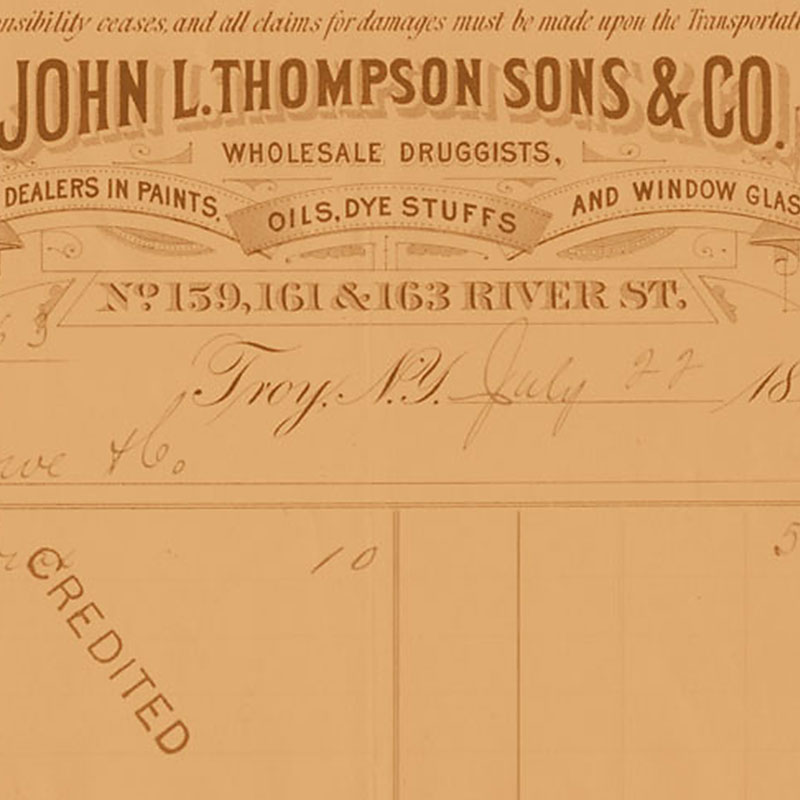 nsibility ceases, and all claims for damages must be made upon the Transportati
JOHN L. THOMPSON SONS & CO.
WHOLESALE DRUGGISTS,
DEALERS IN PAINTS, OILS, DYE STUFFS AND WINDOW GLAS
Nº 159, 161 & 163 RIVER ST.
63
Troy, N.Y. July 22 18
& Co.
10 5
CREDITED